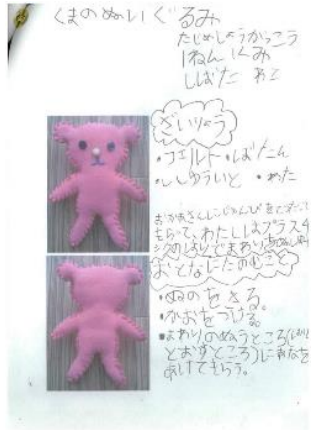 くまのぬいぐるみ
たじめしょうがっこう
1ねん 1くみ
しばた
ざいりょう
・フェルト・ぼたん
・ししゅういと ・わた
おかあさんにじゅんびをてつだって
もらって、わたしはプラスチ
おとなにたのむこと
・ぬのをきる。
・かおをつける。
・まわりのぬうところ(はり
とおすところ)にあなを
あけてもらう。